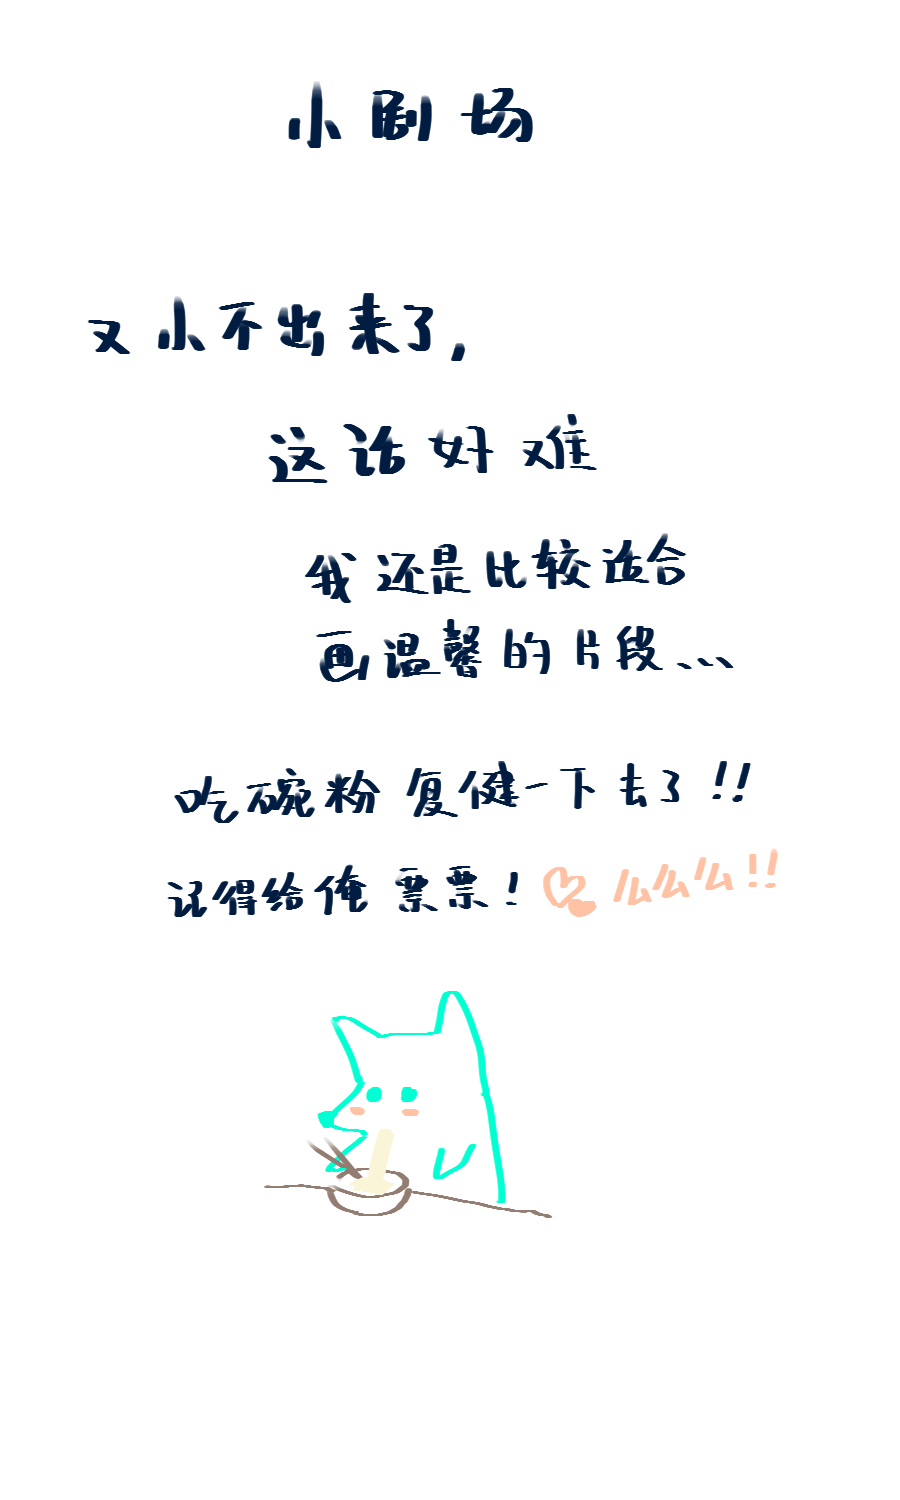 小剧场
又小不出来了,
这话好难
我还是比较适合
画温馨的片段...
吃碗粉复健一下去了!!
记得给俺票票!么么么!!